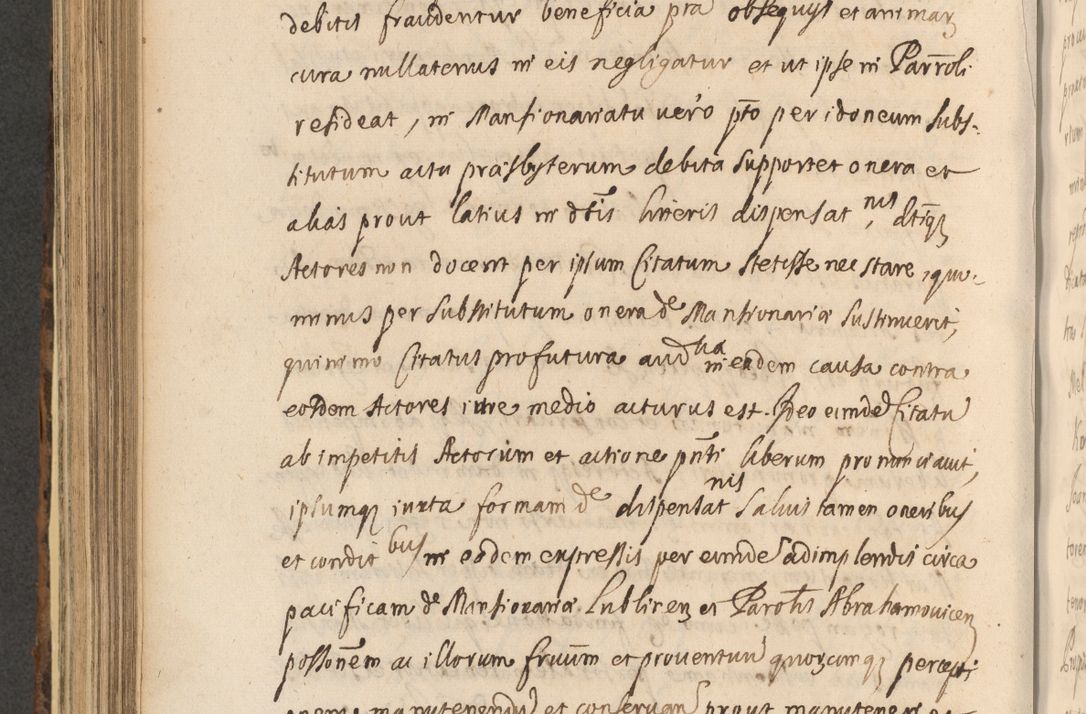 debitis fraudentur beneficia pra obsequys et animarz
cura nullatenus in eis negligatur et ut ipse in Parroli
resideat, in Mansionariatu vero pto per idoneum subs-
titutum actu præsbyterum debita supportet onera et
alias prout latius in dtis literis dispensatnis, dtiqz
Actores non docent per ipsum Citatum stetisse nec stare, quo-
minus per substitutum onera de Mansionariæ sustinuerit,
quinimo Citatus profutura aud in eadem causa contra
eosdem Actores iure medio aiturus est. Ideo eunde Citatu
ab impetitis Actorum et actione pnti liberum pronunciavit,
ipsumqz iuxta formam de dispensatnis salvis tamen oneribus
et conditbus in eadem expressis per eunde adimplendis circa
pacificam de Mansionariæ Lublinenz et Parotis Abrahamovicenz
possonem ac illorum fruum et proventuu quorzcumqz percepti
onem manutenendu et conservan prout manutenet